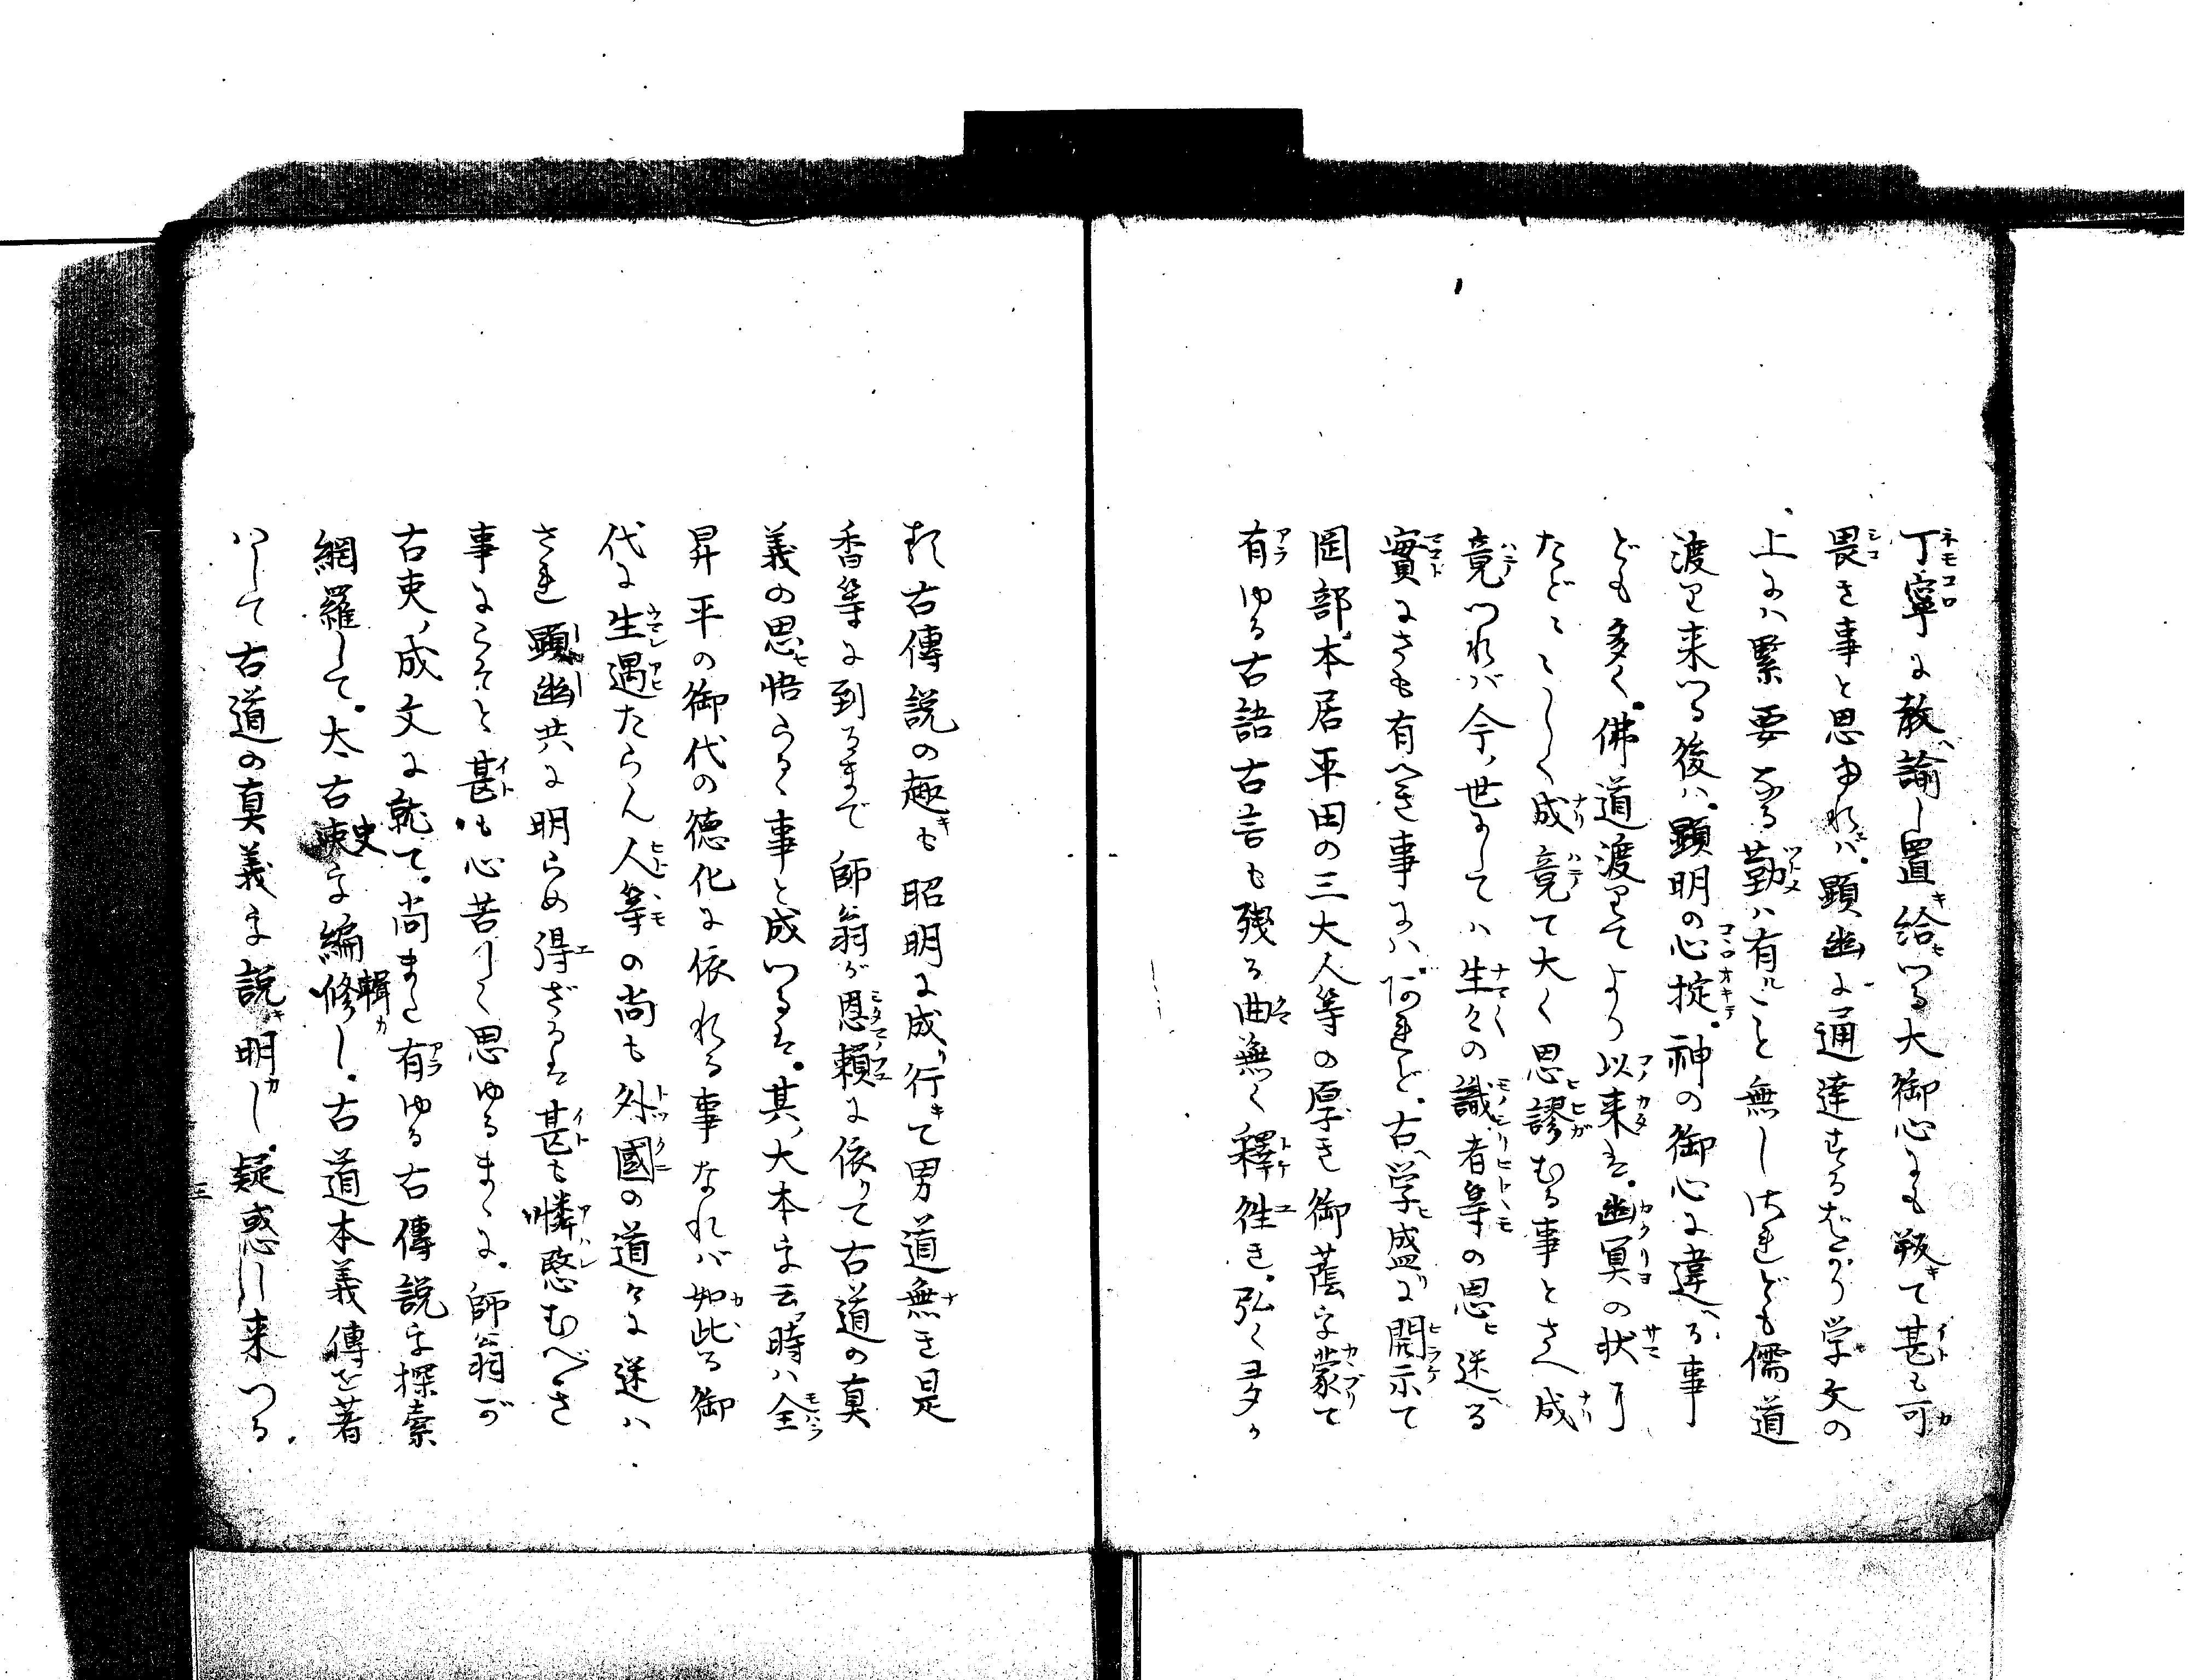 丁寧に教諭し置給へる大御心にも叛て甚も可
畏き事と思ゆれバ。顕幽に通達するばかり学文の
上にハ緊要なる勤ハ有こと無し然れども儒道
渡り来つる後ハ。顕明の心掟。神の御心に違へる事
ども多く。佛道渡りてより以来は。幽冥の状
たど〻〻しく成竟て大く思謬むる事とさへ成
竟つれバ今ノ世にしてハ生々の識者等の思ヒ迷へる
實にさも有へき事にハあれど。古ヘ学ヒ盛に開示て
岡部本居平田の三大人等の厚き御蔭を蒙て
有ゆる古語古言も残る曲無く釋往き。弘く
古傳説の趣も昭明に成行て男道無き是
香等に到るまで師翁が恩頼に依て古道の真
義の思ヒ悟らるゝ事と成つるは。其ノ大本を云時ハ全
昇平の御代の徳化に依れる事なれバ如此る御
代に生遇たらん人等の尚も外國の道々に迷ハ
され顕幽共に明らめ得ざるは甚も憐愍むべき
事にこそと甚も心苦しく思ゆるまゝに。師翁が
古史ノ成文に就て。尚また有ゆる古傳説を探索
網羅して。太古史を編輯し。古道本義傳を著
ハして古道の真義を説明し。疑惑ひ来つる
三